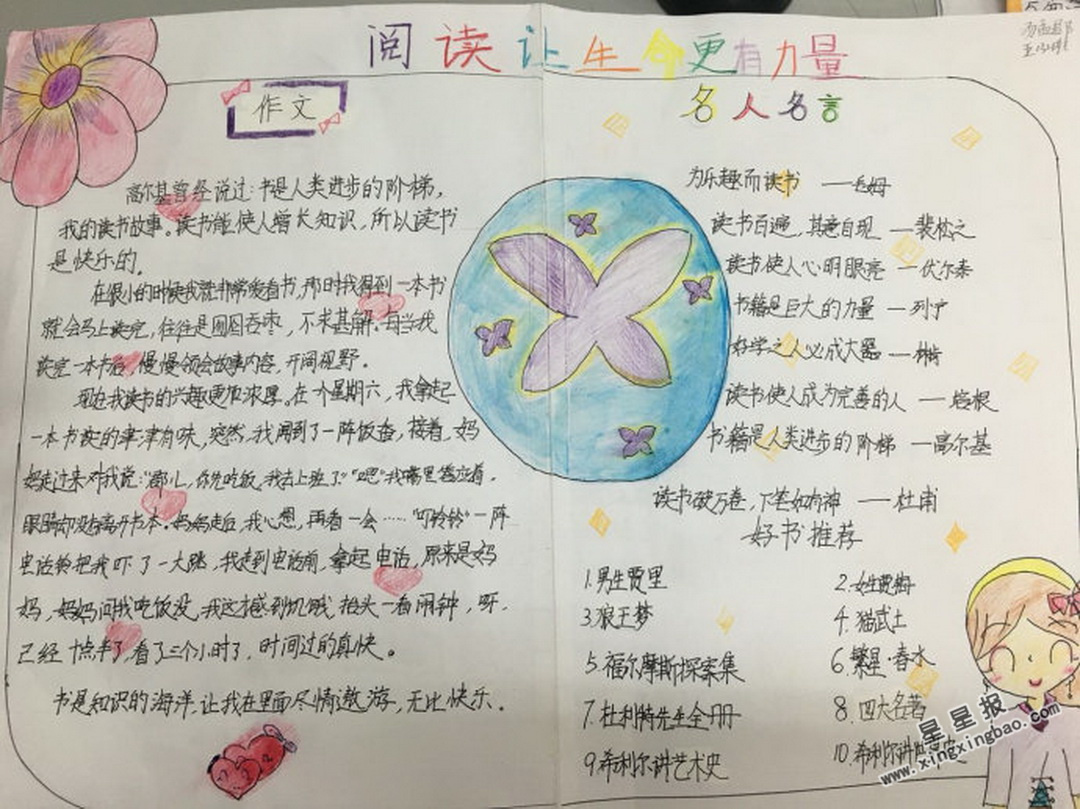 阅读让生命更有力量
作文
高尔基曾经说过:书是人类进步的阶梯,
我的读书故事。读书能使人增长知识,所以读书
是快乐的。
在很小的时候我就非常爱看书,那时我得到一本书
就会马上读完,往往是囫囵吞枣,不求甚解。每当我
读完一本书后,慢慢领会故事内容,开阔视野。
现在我读书的兴趣更加浓厚。在一个星期六,我拿起
一本书读的津津有味,突然,我闻到了一阵饭香,接着,妈
妈走过来对我说:"郡儿,你先吃饭,我去上班了""嗯"我嘴里答应着,
眼睛却没有离开书本。妈妈走后,我心想,再看一会……"叮铃铃"一阵
电话铃把我吓了一大跳,我走到电话前,拿起电话,原来是妈
妈,妈妈问我吃饭没,我这才感到饥饿,抬头一看闹钟,呀,
已经十点半了,看了三个小时了,时间过的真快。
书是知识的海洋,让我在里面尽情遨游,无比快乐。
名人名言
为乐趣而读书 ——毛姆
读书百遍,其意自现 ——裴松之
读书使人心明眼亮 ——伏尔泰
书籍是巨大的力量 ——列宁
好学之人必成大器 ——林肯
读书使人成为完善的人 ——培根
书籍是人类进步的阶梯 ——高尔基
读书破万卷,下笔如有神 ——杜甫
好书推荐
1.男生贾里
2.女生贾梅
3.狼王梦
4.猫武士
5.福尔摩斯探案集
6.繁星·春水
7.杜利特先生全册
8.四大名著
9.希利尔讲艺术史
10.希利尔讲世界史
星星报
www.xingxingbao.com